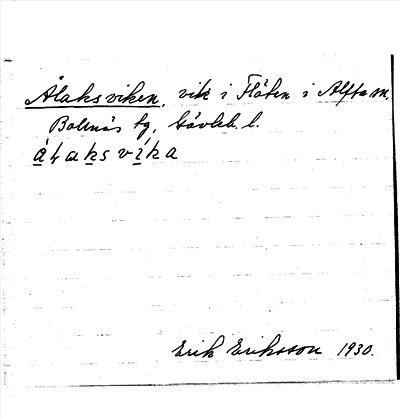 Ålaksviken, vik i Flåten i Alfta sn,
Bollnäs tg, Gävleb. l.
álaksvíka
Erik Eriksson 1930.